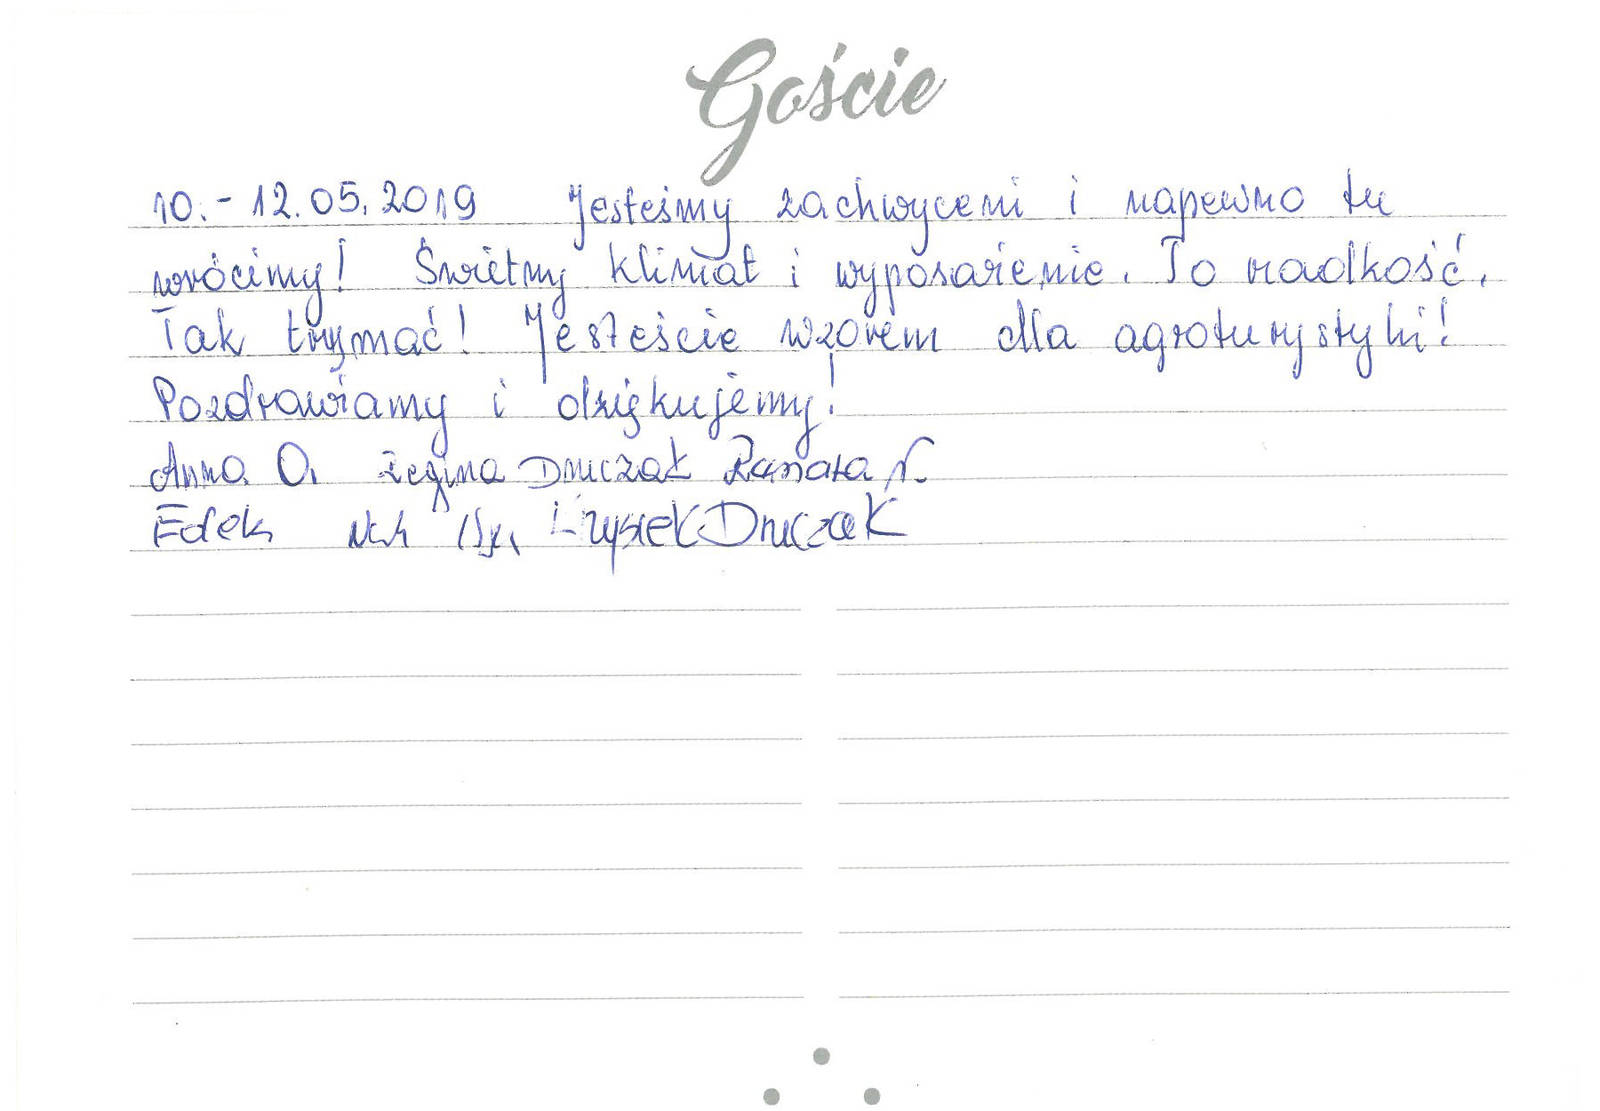 Goście
10.-12.05.2019 Jesteśmy zachwyceni i napewno tu
wrócimy! Świetny klimat i wyposażenie. To rzadkość.
Tak trzymać! Jesteście wzorem dla agroturystyki!
Pozdrawiamy i dziękujemy!
Anna O. Regina Druczak Renata N.
Edek Krzysiek Druczak